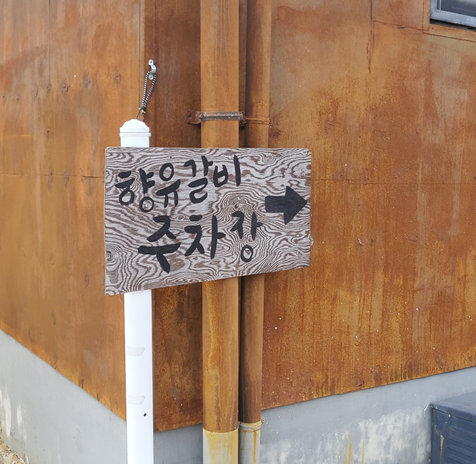 향유갈비
주차장